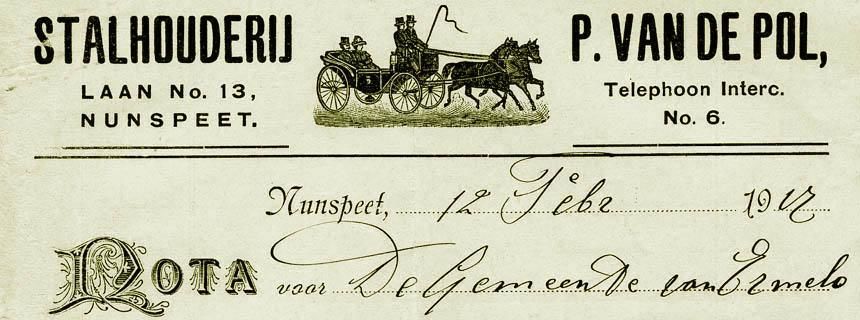 STALHOUDERIJ
LAAN No. 13,
NUNSPEET.
P. VAN DE POL,
Telephoon Interc.
No. 6.
Nunspeet, 12 Febr 1917
NOTA voor De Gemeente van Ermelo